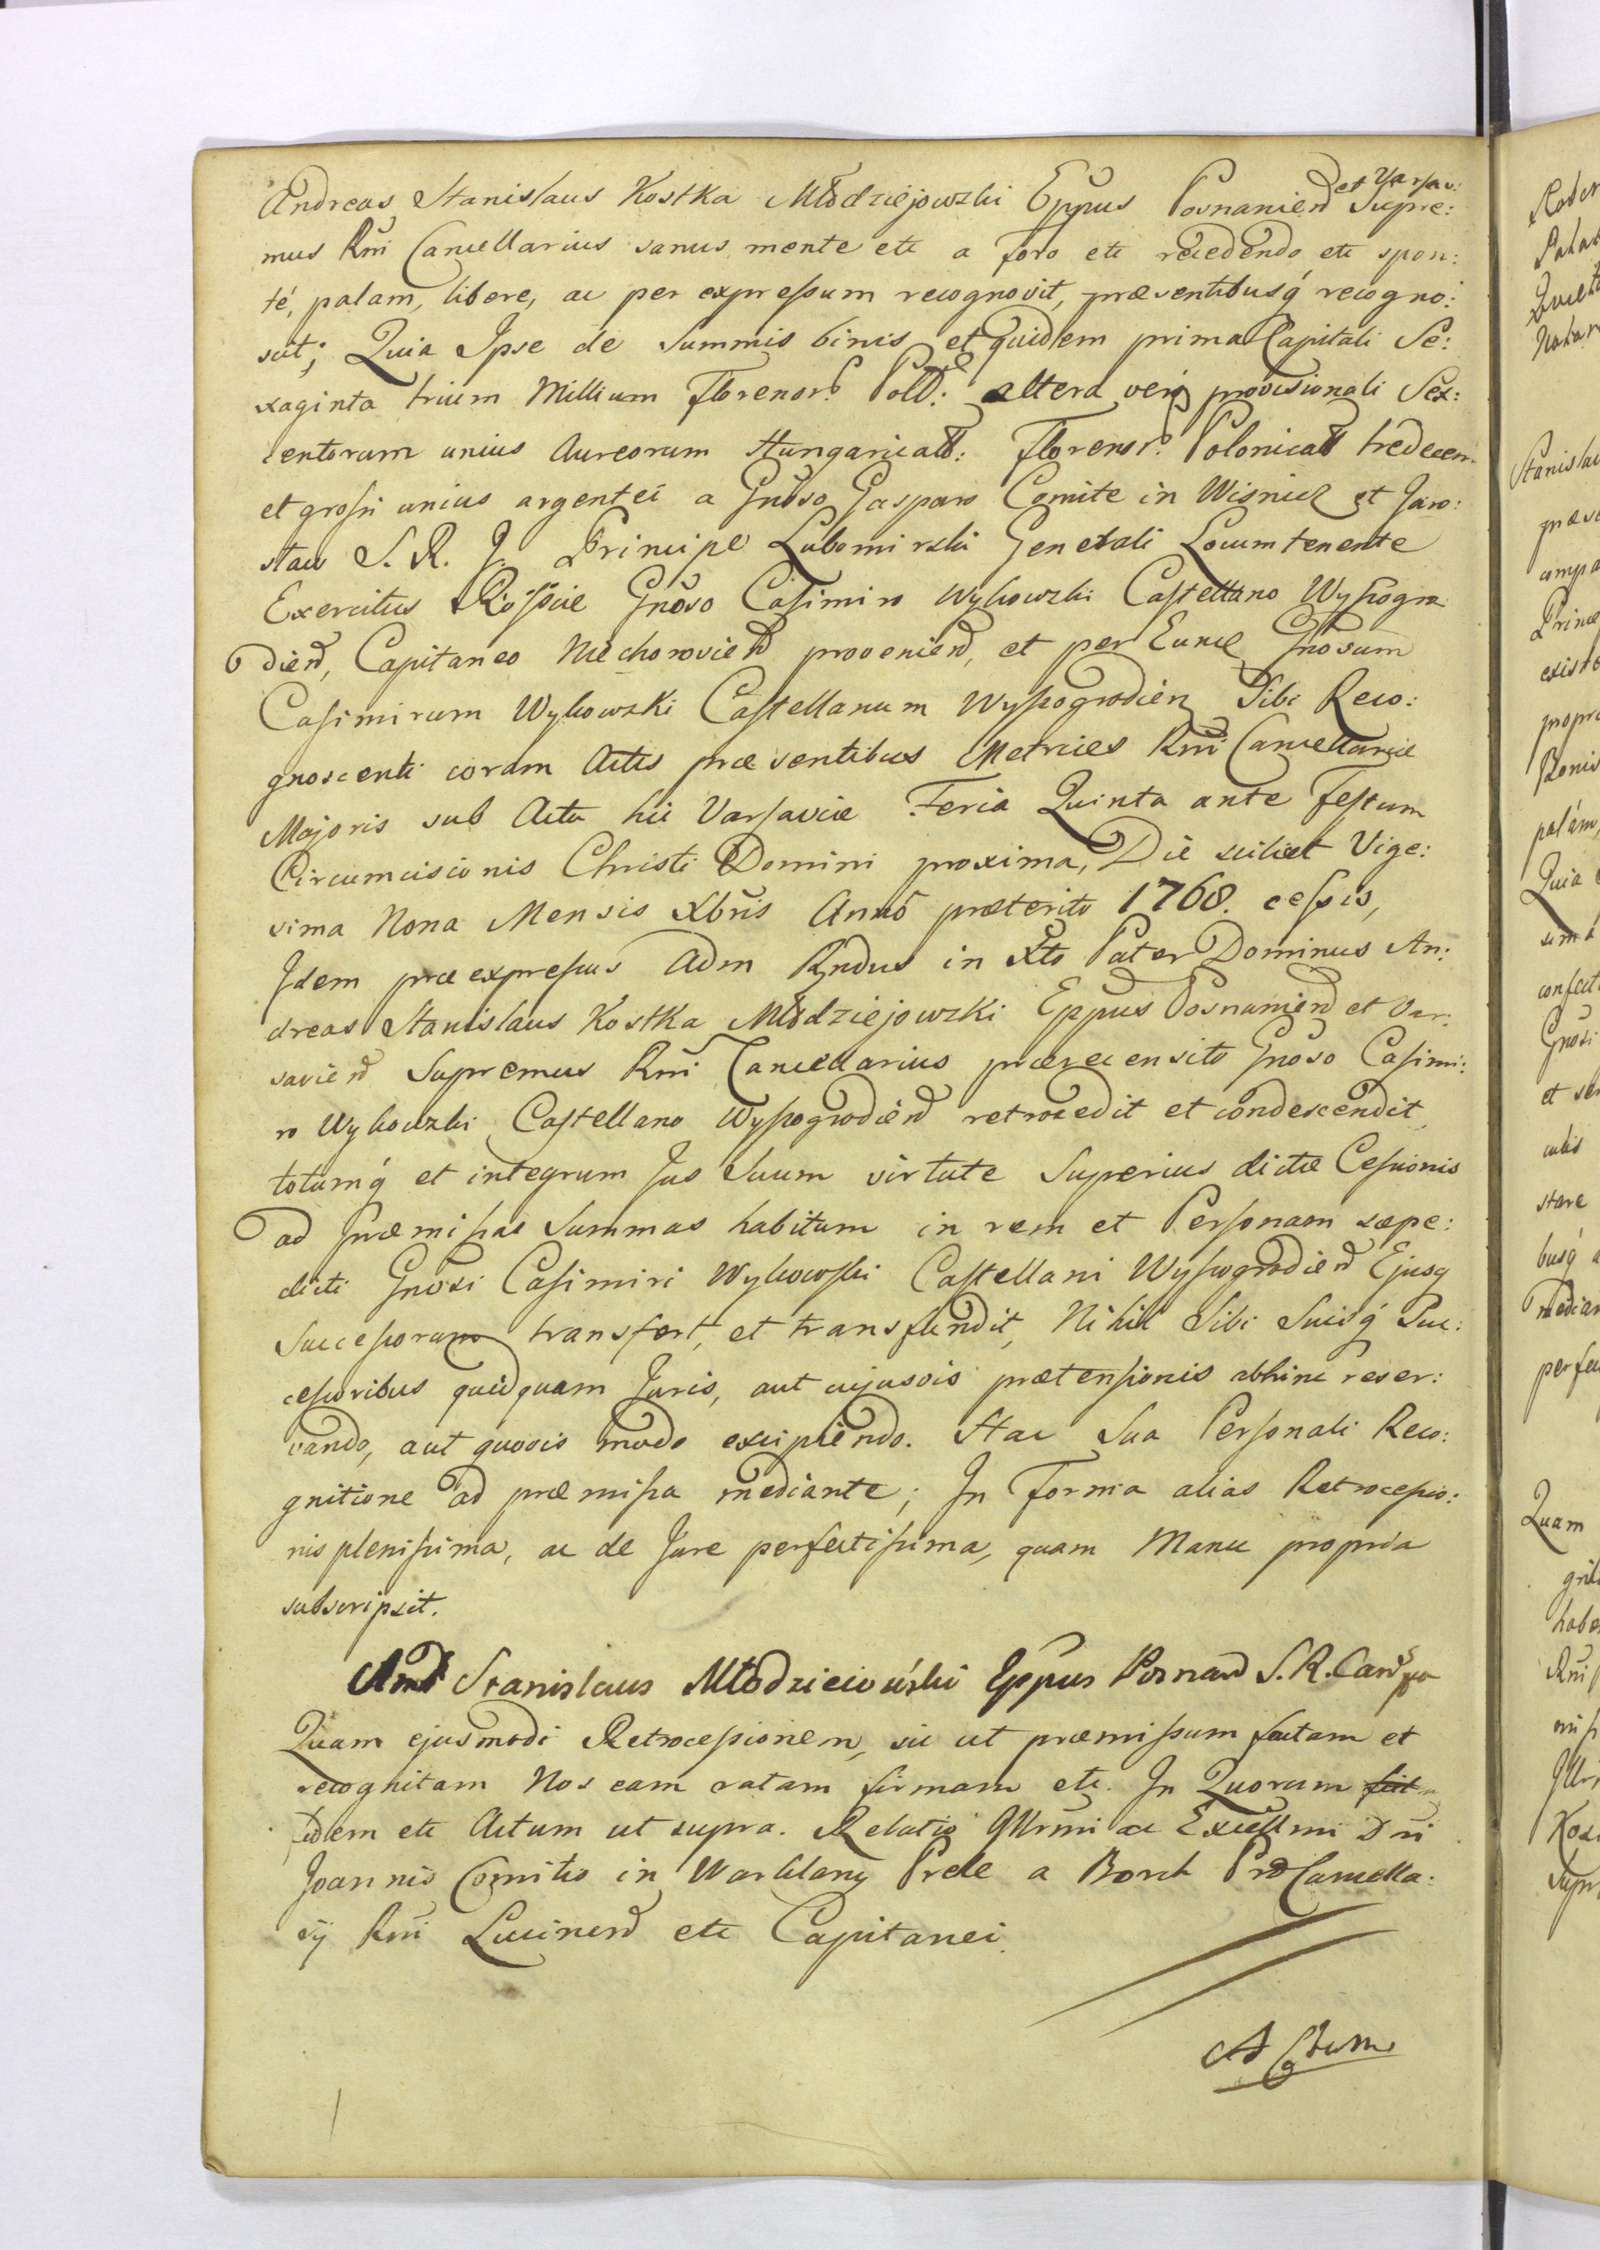 Andreas Stanislaus Kostka Młodziejowski Eppus Posnanien et Varsav: Supre:
mus Rni Cancellarius sanus mente etc a foro etc recedendo etc spon:
té, palam, libere, ac per expressum recognovit, præsentibusq́ recogno:
scit; Quia Ipse de Summis binis et quidem prima Capitali Se:
xaginta trium Millium Florenor. Poll: altera vero provisionali Sex:
centorum unius Aureorum Hungarical: Florenor. Polonical tredecem
et grossi unius argentei a Gnoso Gasparo Comite in Wisnicz et Jaro:
slaw S. R. J. Principe Lubomirski Generali Locumtenente
Exercitus Rossiæ Gnoso Casimiro Wykowski Castellano Wyssogro
dien, Capitaneo Niechorovien provenien, et per Eund Gnosum
Casimirum Wykowski Castellanum Wyssogrodien Sibi Reco:
gnoscenti coram Actis præsentibus Metrices Rni Cancellariæ
Majoris sub Actu hic Varsaviæ Feria Quinta ante Festum
Circumcisionis Christi Domini proxima, Die scilicet Vige:
sima Nona Mensis Xbris Anno præterito 1768. cessis,
Idem præexpressus Adm Rndus in Xto Pater Dominus An:
dreas Stanislaus Kostka Młodziejowzki Eppus Posnanien et Var:
savien Supremus Rni Cancellarius prærecensito Gnoso Casimi:
ro Wykowzki Castellano Wyssogrodien retrocedit et condescendit,
totumq́ et integrum Jus Suum virtute Superius dictæ Cessionis
ad præmissas Summas habitum in rem et Personam sæpe:
dicti Gnosi Casimiri Wykowski Castellani Wyssogrodien Ejusq
Successorum transfert, et transfundit, Nihil Sibi Suisq́ Suc:
cessoribus quidquam Juris, aut cujusvis prætensionis abhinc reser:
vando, aut quovis modo excipiendo. Hac Sua Personali Reco:
gnitione ad præmissa mediante; In Forma alias Retrocessio:
nis plenissima, ac de Jure perfectissima, quam Manu propria
subscripsit.
And Stanislaus Młodzieiowski Eppus Posnan S. R. Canr
Quam ejusmodi Retrocessionem, sic ut præmissum factam et
recognitam Nos eam ratam firmam etc. In Quorum
fidem etc Actum ut supra. Relatio Illrmi ac Excellmi Dni
Joannis Comitis in Warklany Prele a Borch ProCancella:
rij Rni Lucinen etc Capitanei.